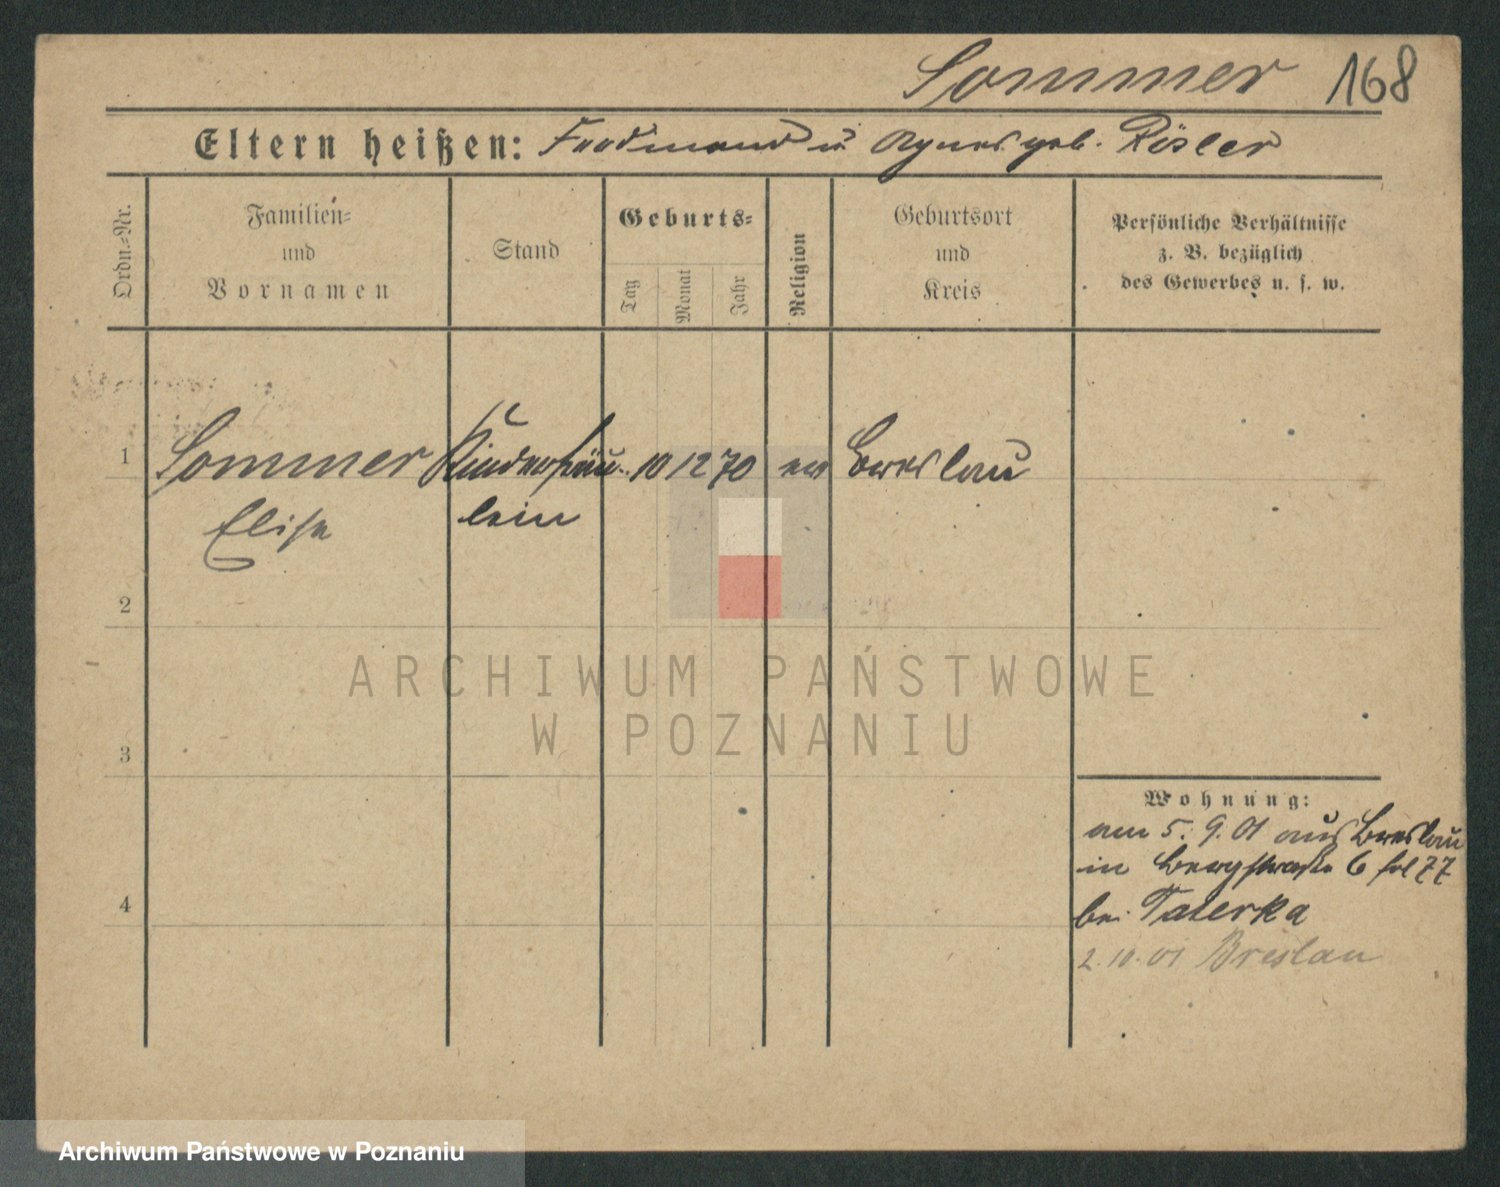 Sommer 168
Eltern heißen: Ferdinand u Agnes geb. Rösler
Ordn.-Nr.
Familien-
und
Vornamen
Stand
Geburts-
Tag
Monat
Jahr
Religion
Geburtsort
und
Kreis
Persönliche Verhältnisse
z. B. bezüglich
des Gewerbes u. s. w.
1 Sommer Kinderfräu- 10 12 70 ev Breslau
Elise lein
2
3
4
Wohnung:
am 5. 9. 01 aus Breslau
in Bergstraße 6 fol 77
bei Taterka
2. 10. 01 Breslau
ARCHIWUM PAŃSTWOWE
W POZNANIU
Archiwum Państwowe w Poznaniu